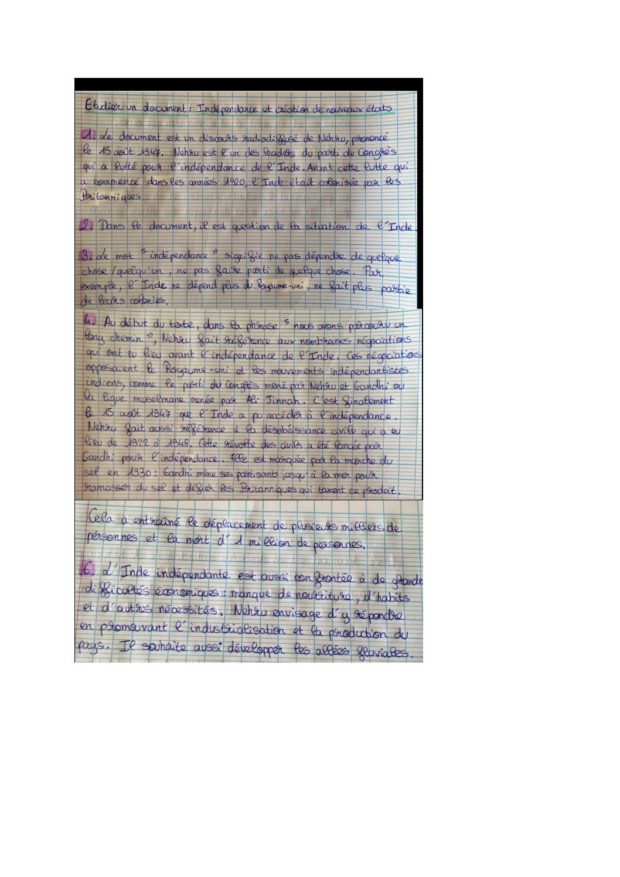 Etudier un document : Indépendance et création de nouveaux états
1. Le document est un discours radiodiffusé de Nehru, prononcé
le 15 août 1947. Nehru est l'un des leaders du parti du Congrès
qui a lutté pour l'indépendance de l'Inde. Avant cette lutte qui
a commencé dans les années 1920, l'Inde était colonisée par les
Britanniques.
2. Dans le document, il est question de la situation de l'Inde.
3. Le mot "indépendance" signifie ne pas dépendre de quelque
chose/quelqu'un, ne pas faire parti de quelque chose. Par
exemple, l'Inde ne dépend plus du Royaume-uni, ne fait plus partie
de leurs colonies.
4. Au début du texte, dans la phrase "nous avons parcouru un
long chemin", Nehru fait référence aux nombreuses négociations
qui ont eu lieu avant l'indépendance de l'Inde. Ces négociations
opposaient le Royaume-uni et les mouvements indépendantistes
indiens, comme le parti du Congrès mené par Nehru et Gandhi ou
la ligue musulmane menée par Ali Jinnah. C'est finalement
le 15 août 1947 que l'Inde a pu accéder à l'indépendance.
Nehru fait aussi référence à la désobéissance civile qui a eu
lieu de 1922 à 1945. Cette révolte des civils a été lancée par
Gandhi pour l'indépendance. Elle est marquée par la marche du
sel en 1930 : Gandhi mène ses partisants jusqu'à la mer pour
ramasser du sel et défier les Britanniques qui taxent ce produit.
Cela a entraîné le déplacement de plusieurs milliers de
personnes et la mort d'1 million de personnes.
6. L'Inde indépendante est aussi confrontée à de grande
difficultés économiques : manque de nourriture, d'habits
et d'autres nécessités. Nehru envisage d'y répondre
en promouvant l'industrialisation et la production du
pays. Il souhaite aussi développer les allées fluviales.